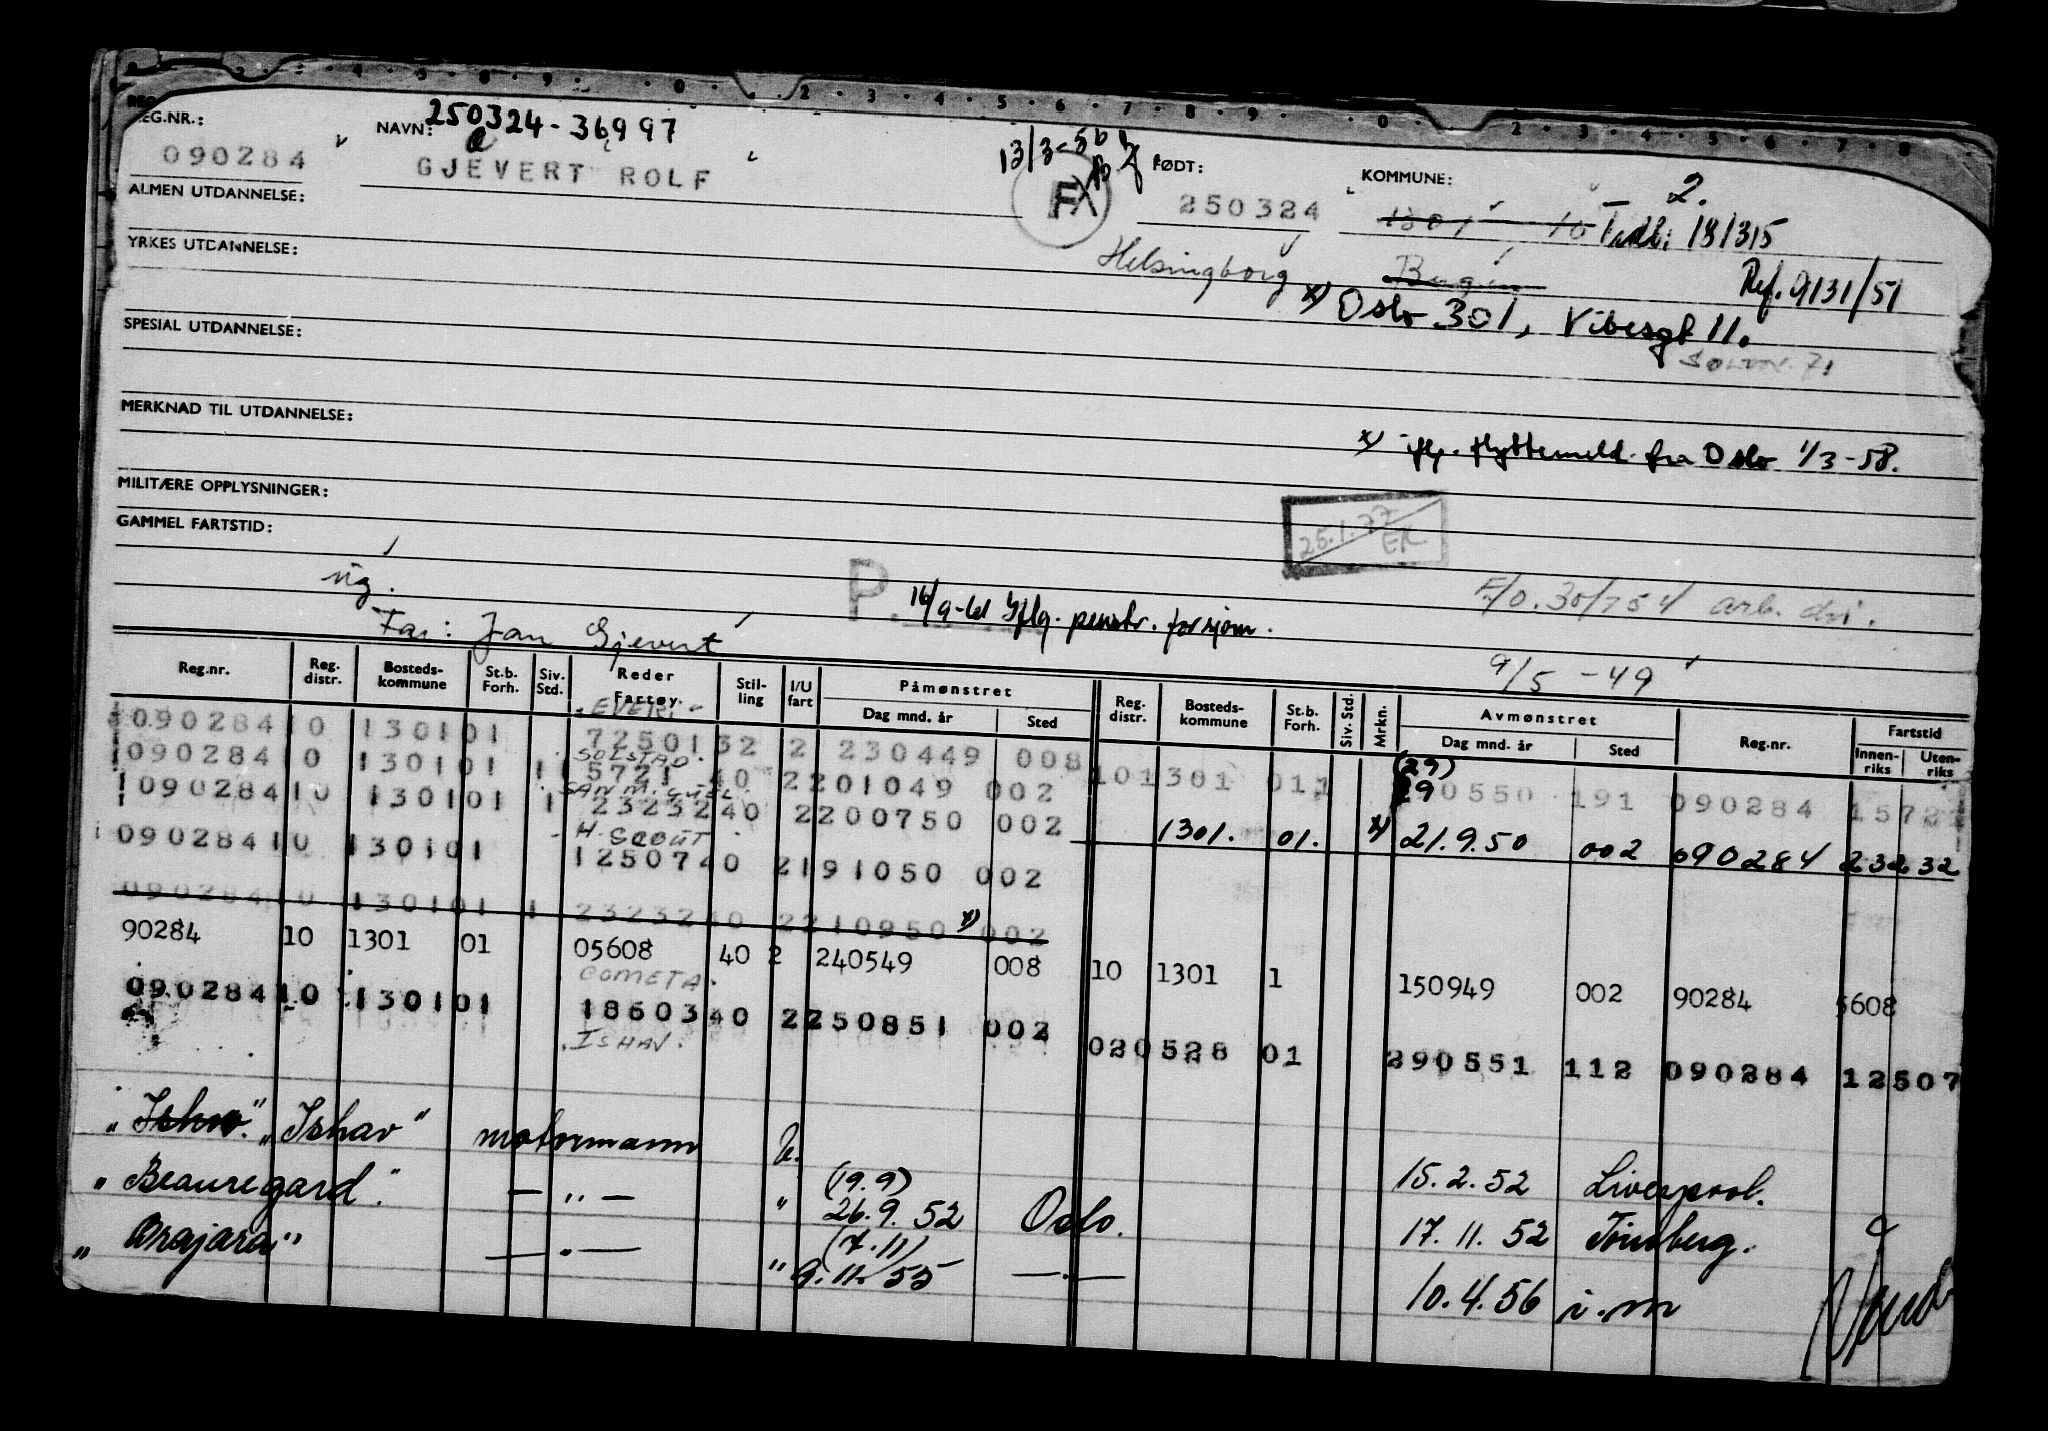 REG.NR.:
090284
NAVN: 250324-36997
GJEVERT ROLF
13/3-56
FX
FØDT:
250324
KOMMUNE:
2.
1301 10 Tidl. 13/315
ALMEN UTDANNELSE:
YRKES UTDANNELSE:
Helsingborg
Bergen
Ref. 9131/51
x) Oslo 301, Vibesgt 11.
SPESIAL UTDANNELSE:
MERKNAD TIL UTDANNELSE:
x) iflg. flyttemeld. fra Oslo 1/3-58.
MILITÆRE OPPLYSNINGER:
25.1.77
ER.
GAMMEL FARTSTID:
P.
Far: Jan Gjevert
iflg. penstr. for sjøm.
9/5-49
Reg.nr. Reg. distr. Bosteds-kommune St.b. Forh. Siv. Std. Reder Fartøy Stil-ling I/U fart Påmønstret Dag mnd. år Sted Reg. distr. Bosteds-kommune St.b. Forh. Siv. Std. Mrkn. Avmønstret Dag mnd. år Sted Reg.nr. Fartstid Innen-riks Uten-riks
090284 10 1301 01 72501 32 2 230449 008
SOLSTAD.
090284 10 1301 01 1 5721 40 2 201049 002 10 1301 01 1 (29) 190550 191 090284 1572
SAN MIGUEL.
090284 10 1301 01 1 23232 40 2 200750 002 1301. 01. x) 21.9.50 002 090284 232 32
H. SCOUT
090284 10 1301 01 12507 40 2 191050 002
090284 10 1301 01 1 23232 40 2 210950 x) 002
90284 10 1301 01 05608 40 2 240549 008 10 1301 1 150949 002 90284 5608
COMETA.
090284 10 1301 01 18603 40 2 250851 002 02 0528 01 290551 112 090284 12507
ISHAV.
"Ishav." "Ishav" motormann U. 15.2.52 Liverpool.
"Beauregard." — " — " (19.9) 26.9.52 Oslo. 17.11.52 Tønsberg.
— " — " (7.11) 9.11.55 — " — 10.4.56 i.m